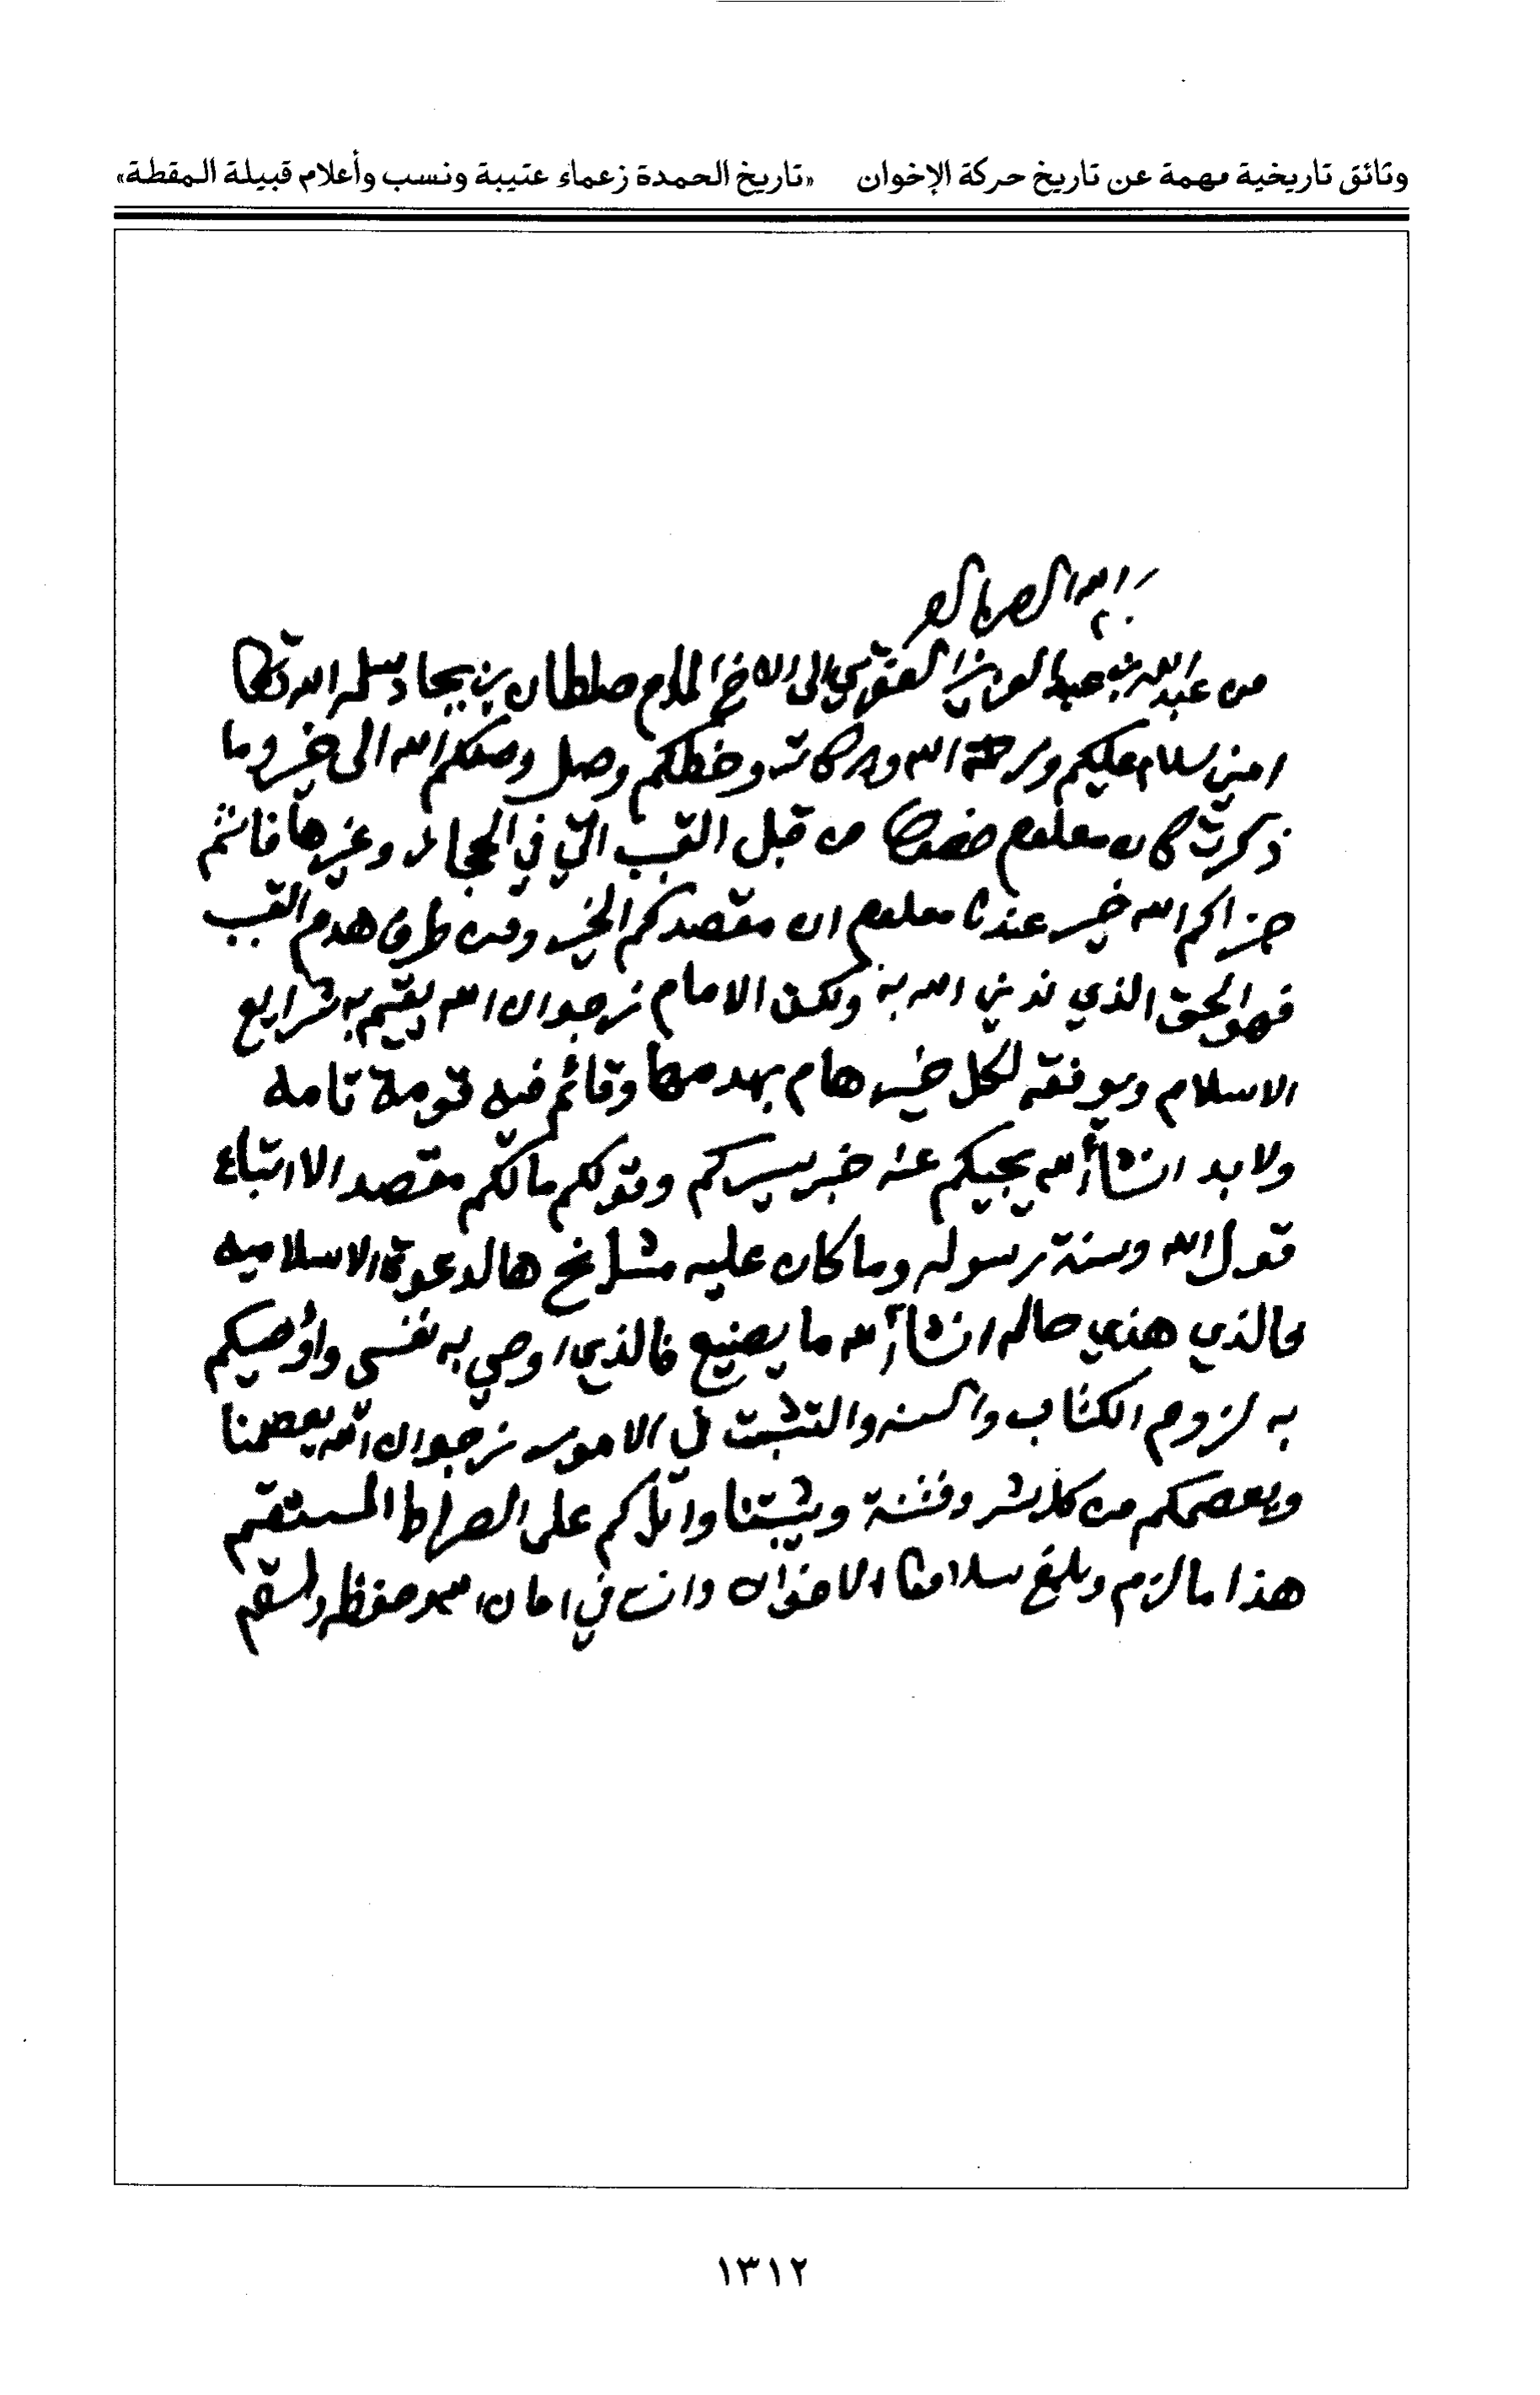 وثائق تاريخية مهمة عن تاريخ حركة الإخوان «تاريخ الحمدة زعماء عتيبة ونسب وأعلام قبيلة المقطة»
بسم الله الرحمن الرحيم
من عبدالله بن عبدالعزيز العنقري الى الاخ المكرم صلطان بن بجاد سلمه الله تعالى
امين سلام عليكم ورحمة الله وبركاته وخطكم وصل وصلكم الله الى خير وما
ذكرت كان معلوم خصوصا من قبل القبب التي في الحجاز وغيرها فانتم
جزاكم الله خير عندنا معلوم ان مقصدكم الخير ومن طرف هدم القبب
فهو الحق الذي ندين الله به ولكن الامام نرجوا ان الله يقيم به شرايع
الاسلام ويوفقه لكل خير هام بهدمها وقائم فيه قومة تامه
ولا بد انشأالله يجيكم عنه خبر يسركم وقولكم مالكم مقصد الا اتباع
قول الله وسنة رسوله وما كان عليه مشايخ هالدعوة الاسلاميه
فالذي هذي حاله انشأالله ما يضيع فالذي اوصي به نفسي واوصيكم
به لزوم الكتاب والسنه والتثبت في الامور نرجوا ان الله يعصمنا
ويعصمكم من كل شر وفتنة ويثبتنا واياكم على الصراط المستقيم
هذا ما لزم وبلغ سلامنا الاخوان وانت في امان الله وحفظه والسلام
١٣١٢